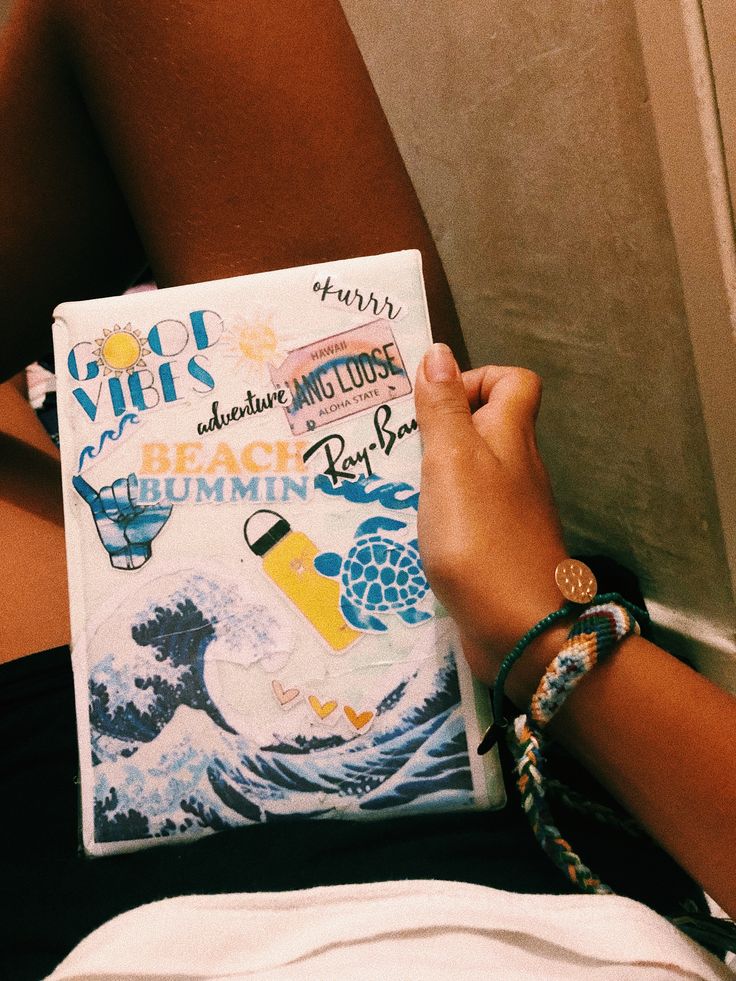 okurrr
GOOD
VIBES
HAWAII
HANG LOOSE
ALOHA STATE
adventure
Ray-Ban
BEACH
BUMMIN